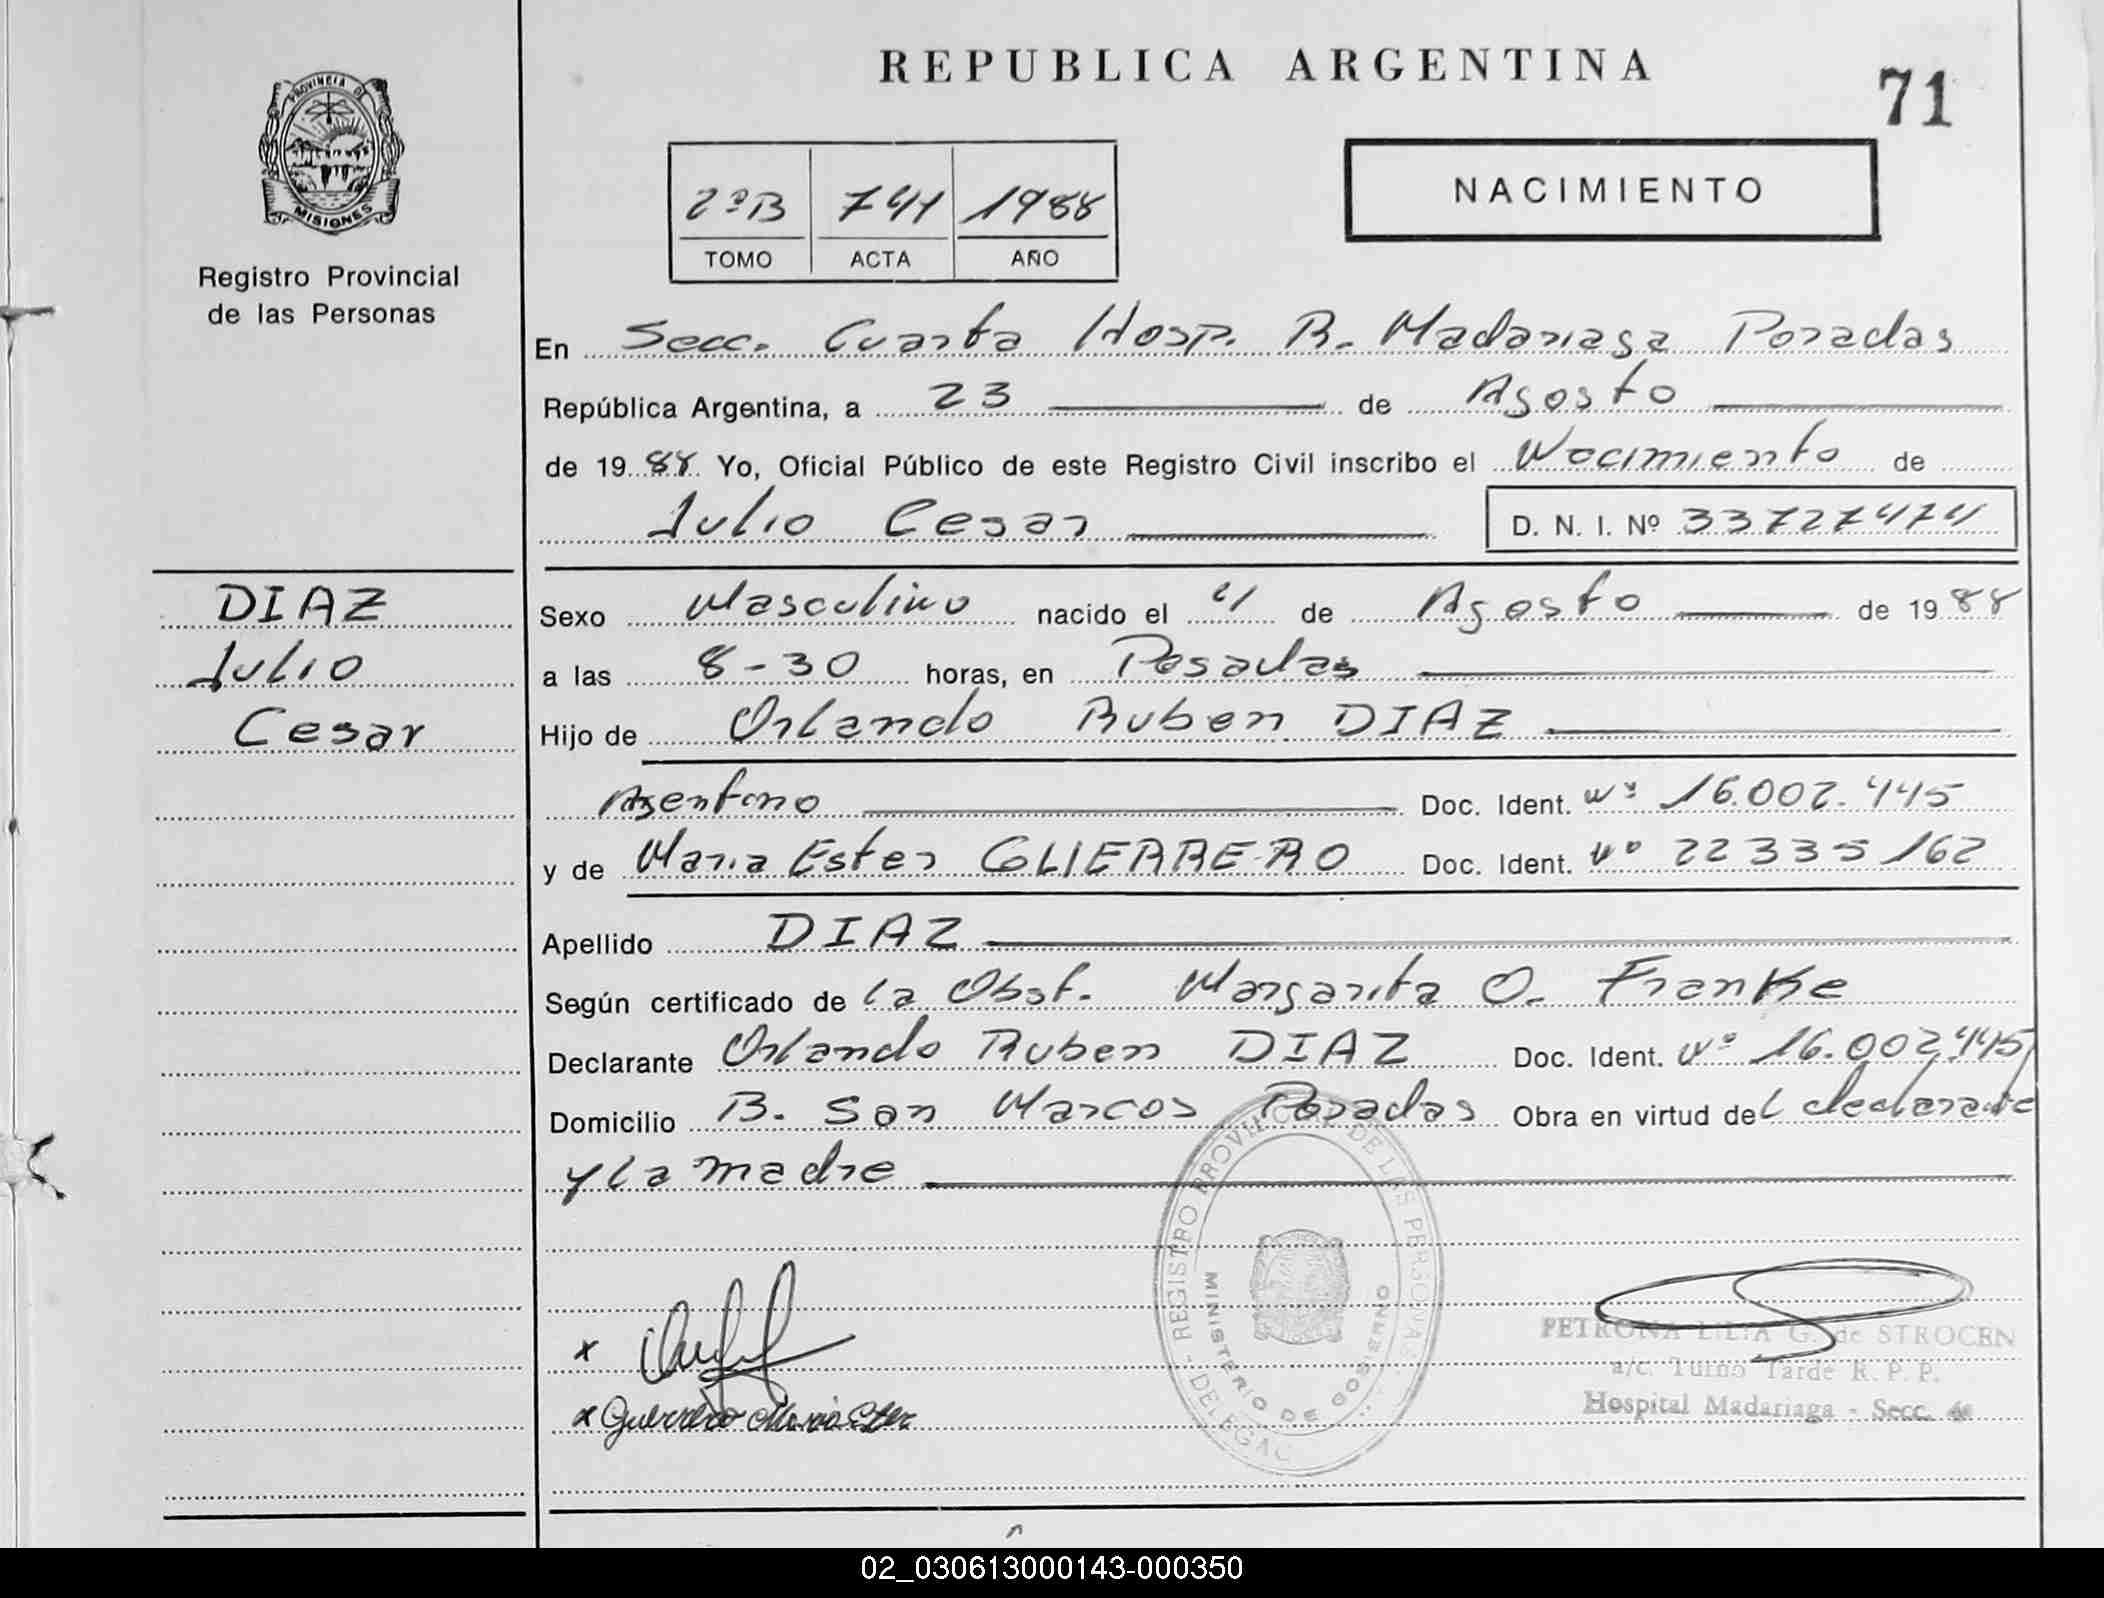 REPUBLICA ARGENTINA
71
PROVINCIA DE
MISIONES
Registro Provincial
de las Personas
2ºB 741 1988
TOMO ACTA AÑO
NACIMIENTO
En Secc. Cuarta Hosp. R. Madariaga Posadas
República Argentina, a 23 de Agosto
de 1988 Yo, Oficial Público de este Registro Civil inscribo el Nacimiento de
Julio Cesar D. N. I. Nº 33727474
DIAZ
Julio
Cesar
Sexo Masculino nacido el 4 de Agosto de 1988
a las 8-30 horas, en Posadas
Hijo de Orlando Ruben DIAZ
Argentino Doc. Ident. Nº 16.002.445
y de Maria Ester GUERRERO Doc. Ident. Nº 22335162
Apellido DIAZ
Según certificado de la Obst. Margarita O. Franke
Declarante Orlando Ruben DIAZ Doc. Ident. Nº 16.002.445
Domicilio B. San Marcos Posadas Obra en virtud del declarante
y la madre
REGISTRO PROVINCIAL DE LAS PERSONAS - DELEGAC
MINISTERIO DE GOBIERNO
x
x Guerrero Maria Ester
PETRONA LILIA G. de STROCEN
a/c. Turno Tarde R. P. P.
Hospital Madariaga - Secc. 4a
02_030613000143-000350